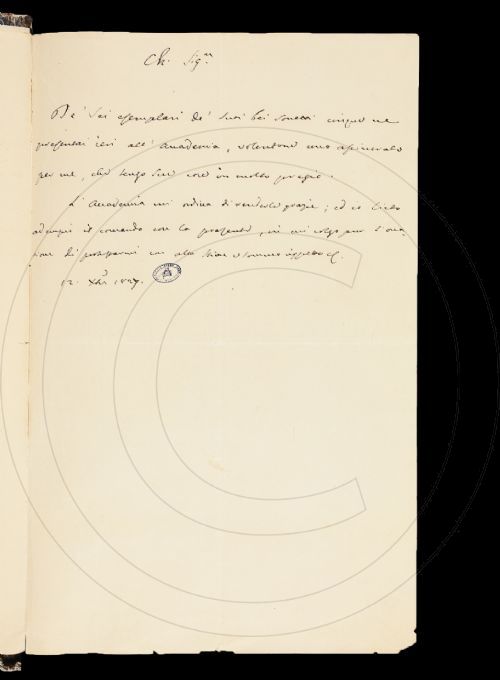 Ch. Sig.re
De' sei esemplari de' suoi bei sonetti cinque ne
presentai ieri all' Accademia, volendone uno
per me, che tengo in molto pregio.
L' Accademia mi ordina di renderle grazie; ed io
adempio il comando con la presente, in cui colgo pur l' occa
sione di protestarmi con alta stima
12. Xbre 1827.